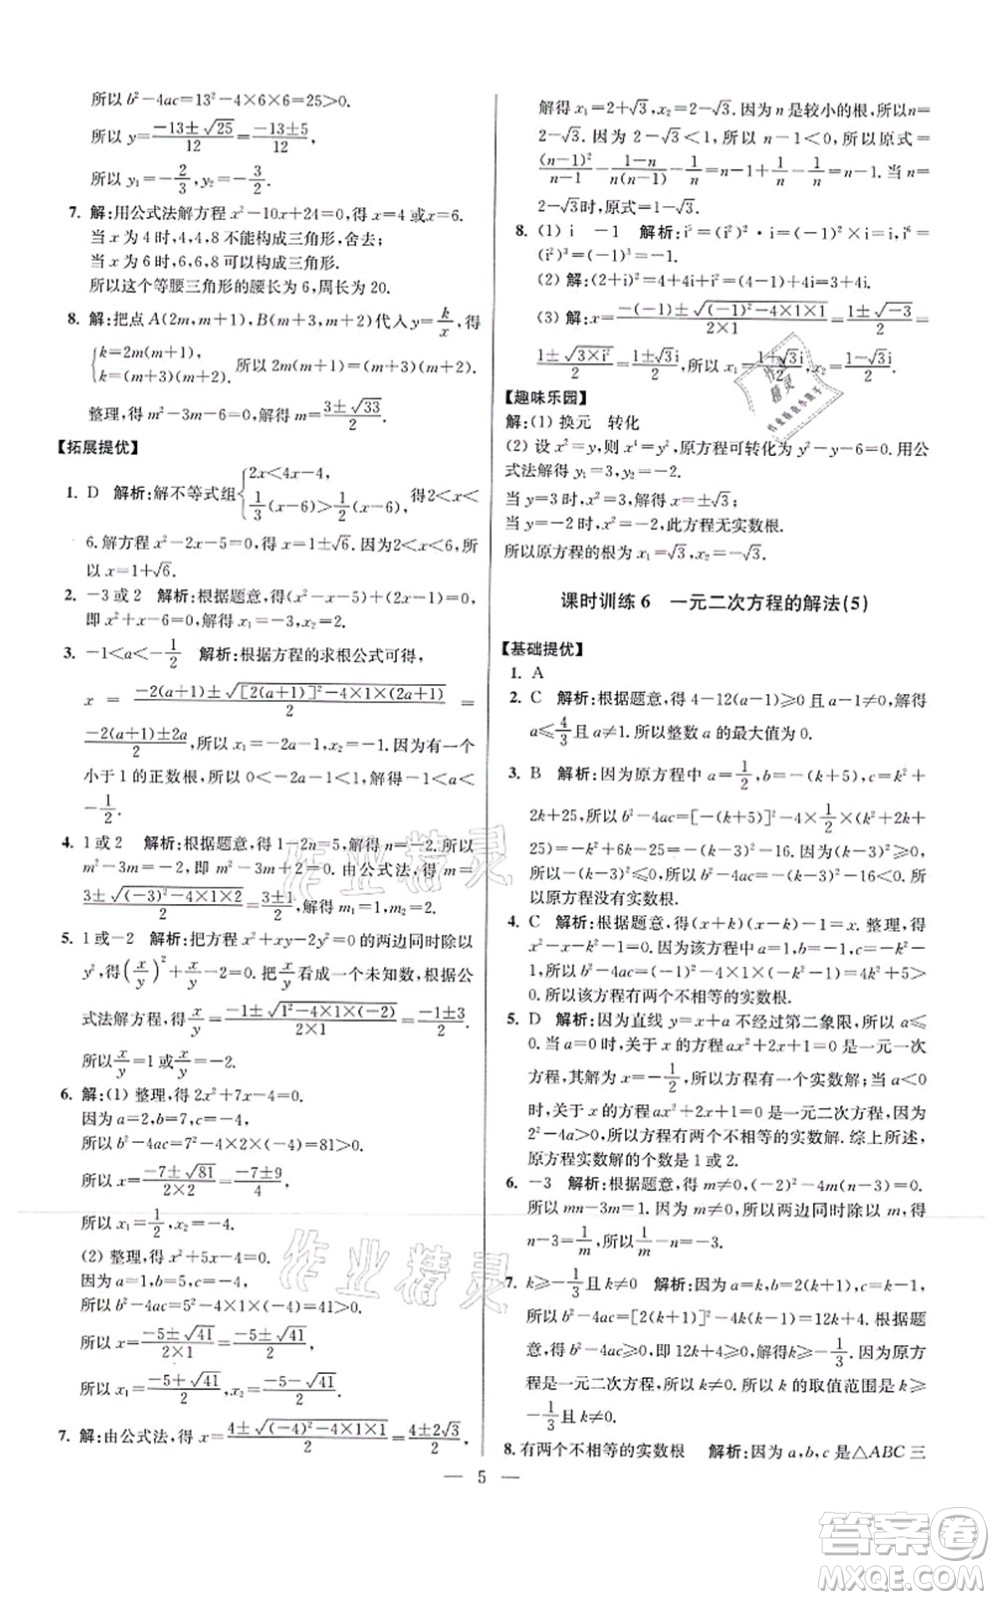 所以 b²-4ac=13²-4×6×6=25>0.
所以 y=(-13±√25)/12=(-13±5)/12,
所以 y₁=-2/3, y₂=-3/2.
7. 解:用公式法解方程 x²-10x+24=0,得 x=4或 x=6.
当 x 为 4 时,4,4,8 不能构成三角形,舍去;
当 x 为 6 时,6,6,8 可以构成三角形.
所以这个等腰三角形的腰长为 6,周长为 20.
8. 解:把点 A(2m,m+1),B(m+3,m+2)代入 y=k/x,得
{k=2m(m+1),
k=(m+3)(m+2), 所以 2m(m+1)=(m+3)(m+2).
整理,得 m²-3m-6=0,解得 m=(3±√33)/2.
【拓展提优】
1. D 解析:解不等式组{2x<4x-4, 1/3(x-6)>1/2(x-6), 得2<x<
6.解方程 x²-2x-5=0,得 x=1±√6. 因为2<x<6,所
以 x=1+√6.
2. -3或2 解析:根据题意,得(x²-x)-(5-2x)=1,
即 x²+x-6=0,解得 x₁=-3,x₂=2.
3. -1<a<-1/2 解析:根据方程的求根公式可得,
x = (-2(a+1)±√([2(a+1)]²-4×1×(2a+1)))/2 =
(-2(a+1)±2a)/2,所以 x₁=-2a-1,x₂=-1.因为有一个
小于1的正数根,所以 0<-2a-1<1,所以-1<a<
-1/2.
4. 1或2 解析:根据题意,得1-2n=5,解得n=-2.所以
m²-3m=-2,即 m²-3m+2=0. 由公式法,得 m=
(3±√((-3)²-4×1×2))/2=(3±1)/2,解得 m₁=1,m₂=2.
5. 1或-2 解析:把方程 x²+xy-2y²=0的两边同时除以
y²,得(x/y)²+x/y-2=0. 把x/y看成一个未知数,根据公
式法解方程,得x/y=(-1±√(1²-4×1×(-2)))/(2×1)=(-1±3)/2.
所以x/y=1或x/y=-2.
6. 解:(1) 整理,得 2x²+7x-4=0.
因为 a=2,b=7,c=-4,
所以 b²-4ac=7²-4×2×(-4)=81>0.
所以 x=(-7±√81)/(2×2)=(-7±9)/4,
所以 x₁=1/2,x₂=-4.
(2) 整理,得 x²+5x-4=0.
因为 a=1,b=5,c=-4,
所以 b²-4ac=5²-4×1×(-4)=41>0.
所以 x=(-5±√41)/(2×1)=(-5±√41)/2,
所以 x₁=(-5+√41)/2,x₂=(-5-√41)/2.
7. 解:由公式法,得 x=(4±√((-4)²-4×1×1))/2=(4±2√3)/2,
解得 x₁=2+√3,x₂=2-√3. 因为 n 是较小的根,所以 n=
2-√3. 因为 2-√3<1,所以 n-1<0,所以原式=
(n-1)²/(n-1)-(1-n)/(n(1-n))=n-1-1/n. 当 n=
2-√3时,原式=-1-2√3.
8. (1) i -1 解析:i³=(i²)·i=(-1)×i=-i,i⁶=
(i²)³=(-1)³=-1.
(2) 解:(2+i)²=4+4i+i²=(4-1)+4i=3+4i.
(3) 解:x=(-(-1)±√((-1)²-4×1×1))/(2×1)=(1±√-3)/2=
(1±√(3×i²))/2=(1±√3i)/2,所以 x₁=(1+√3i)/2,x₂=(1-√3i)/2.
【趣味乐园】
解:(1) 换元 转化
(2) 设 x²=y,则 x⁴=y²,原方程可转化为 y²-y-6=0. 用公
式法解得 y₁=3,y₂=-2.
当 y=3 时,x²=3,解得 x=±√3;
当 y=-2 时,x²=-2,此方程无实数根.
所以原方程的根为 x₁=√3,x₂=-√3.
课时训练 6 一元二次方程的解法(5)
【基础提优】
1. A
2. C 解析:根据题意,得 4-12(a-1)≥0 且 a-1≠0,解得
a≤4/3且 a≠1. 所以整数 a 的最大值为 0.
3. B 解析:因为原方程中 a=1/2,b=-(k+5),c=k²+
2k+25,所以 b²-4ac=[-(k+5)]²-4×1/2×(k²+2k+
25)=-k²+6k-25=-(k-3)²-16. 因为
-(k-3)²≤0,所以 b²-4ac=-(k-3)²-16<0,所以
原方程没有实数根.
4. C 解析:根据题意,得(x+k)(x-k)-1=kx. 整理,得
x²-kx-k²-1=0. 因为该方程中 a=1,b=-k,c=
-k²-1,所以 b²-4ac=(-k)²-4×1×(-k²-1)=5k²+4>
0. 所以该方程有两个不相等的实数根.
5. D 解析:因为直线 y=x+a 不经过第二象限,所以 a≤
0. 当 a=0 时,关于 x 的方程 ax²+2x+1=0 是一元一次
方程,其解为 x=-1/2,所以方程有一个实数解;当 a<0
时,关于 x 的方程 ax²+2x+1=0 是一元二次方程,因为
2²-4a>0,所以方程有两个不相等的实数解. 综上所述,
原方程实数解的个数是 1 或 2.
6. -3 解析:根据题意,得 m≠0,(-n)²-4m=0,
所以 mn-3m=1. 因为 m≠0,所以两边同时除以 m,得
n-3=1/m,所以1/m-n=-3.
7. k≥-1/3且 k≠0 解析:因为 a=k,b=2(k+1),c=k-1,
所以 b²-4ac=[2(k+1)]²-4×k×(k-1)≥0. 根据题
意,得 b²-4ac≥0,即 12k+4≥0,解得 k≥-1/3. 因为原方
程是一元二次方程,所以 k≠0. 所以 k 的取值范围是 k≥
-1/3且 k≠0.
8. 有两个不相等的实数根 解析:因为 a,b,c 是△ABC 三
— 5 —
作业精灵
作业精灵
答案卷
MXQE.COM